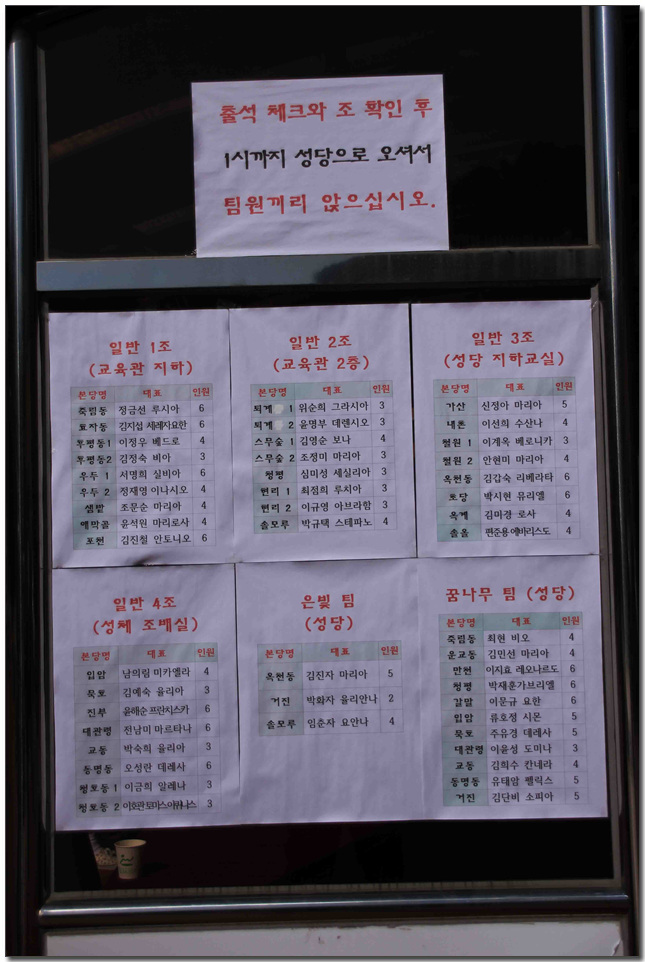 출석 체크와 조 확인 후
1시까지 성당으로 오셔서
팀원끼리 앉으십시오.
일반 1조
(교육관 지하)
본당명 대표 인원
죽림동 정금선 루시아 6
효자동 김지섭 세례자요한 6
후평동1 이정우 베드로 4
후평동2 김정숙 비아 3
우두 1 서명희 실비아 6
우두 2 정재영 이냐시오 4
샘밭 조문순 마리아 4
애막골 윤석원 마리로사 4
포천 김진철 안토니오 6
일반 2조
(교육관 2층)
본당명 대표 인원
퇴계 1 위순희 그라시아 3
퇴계 2 윤명부 데렌시오 3
스무숲 1 김영순 보나 4
스무숲 2 조정미 마리아 3
청평 심미성 세실리아 3
현리 1 최점희 루치아 3
현리 2 이규영 아브라함 3
솔모루 박규택 스테파노 4
일반 3조
(성당 지하교실)
본당명 대표 인원
가산 신정아 마리아 5
내촌 이선희 수산나 4
철원 1 이계옥 베로니카 3
철원 2 안현미 마리아 4
옥천동 김갑숙 리베라타 6
토당 박시현 유리엘 6
옥계 김미경 로사 4
솔올 편준용 에바리스도 4
일반 4조
(성체 조배실)
본당명 대표 인원
입암 남의림 미카엘라 4
묵호 김예숙 율리아 3
진부 윤해순 프란치스카 6
대관령 전남미 마르타나 6
교동 박숙희 율리아 3
동명동 오성란 데레사 6
청호동 1 이금희 알레나 3
청호동 2 이호관 토마스아퀴나스 3
은빛 팀
(성당)
본당명 대표 인원
옥천동 김진자 마리아 5
거진 박화자 율리안나 2
솔모루 임춘자 요안나 4
꿈나무 팀 (성당)
본당명 대표 인원
죽림동 최현 비오 4
운교동 김민선 마리아 4
만천 이지효 레오나르도 6
청평 박재훈가브리엘 6
갈말 이문규 요한 6
입암 류호정 시몬 5
묵호 주유경 데레사 5
대관령 이윤성 도미나 3
교동 김희수 칸네라 4
동명동 유태암 펠릭스 5
거진 김단비 소피아 5